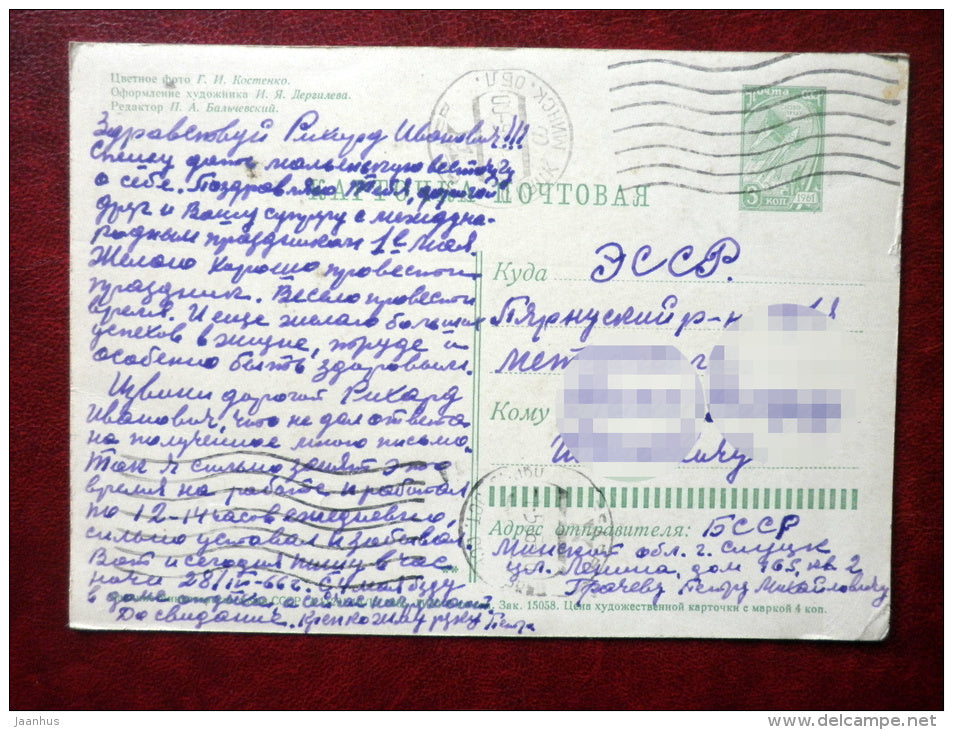 Цветное фото Г. И. Костенко.
Оформление художника И. Я. Дергилева.
Редактор П. А. Бальчевский.
почта СССР
3 коп 1961
КАРТОЧКА ПОЧТОВАЯ
Здравствуй Рихард Иванович!!!
Спешу дать маленькую весточку
о себе. Поздравляю тебя, дорогой
друг и Вашу супругу с междуна-
родным праздником 1е Мая.
Желаю хорошо провести
праздник. Весело провести
время. И еще желаю больших
успехов в жизни, труде и
особенно быть здоровым.
Извини дорогой Рихард
Иванович, что не дал ответа
на полученное мною письмо.
Так я сильно занят это
время на работе и работал
по 12-14 часов ежедневно,
сильно уставал
Вот и сегодня пишу в час
ночи 28/IV-66г. С 4 мая буду
в
До свидания. Крепко жму руку
Куда ЭССР.
Пярнуский р-н
Кому
Адрес отправителя: БССР
Минская обл. г. Слуцк
ул. Ленина, дом 165, кв. 2
Грачеву Петру Михайловичу
Зак. 15058. Цена художественной карточки с маркой 4 коп.
Jaanhus
www.delcampe.net